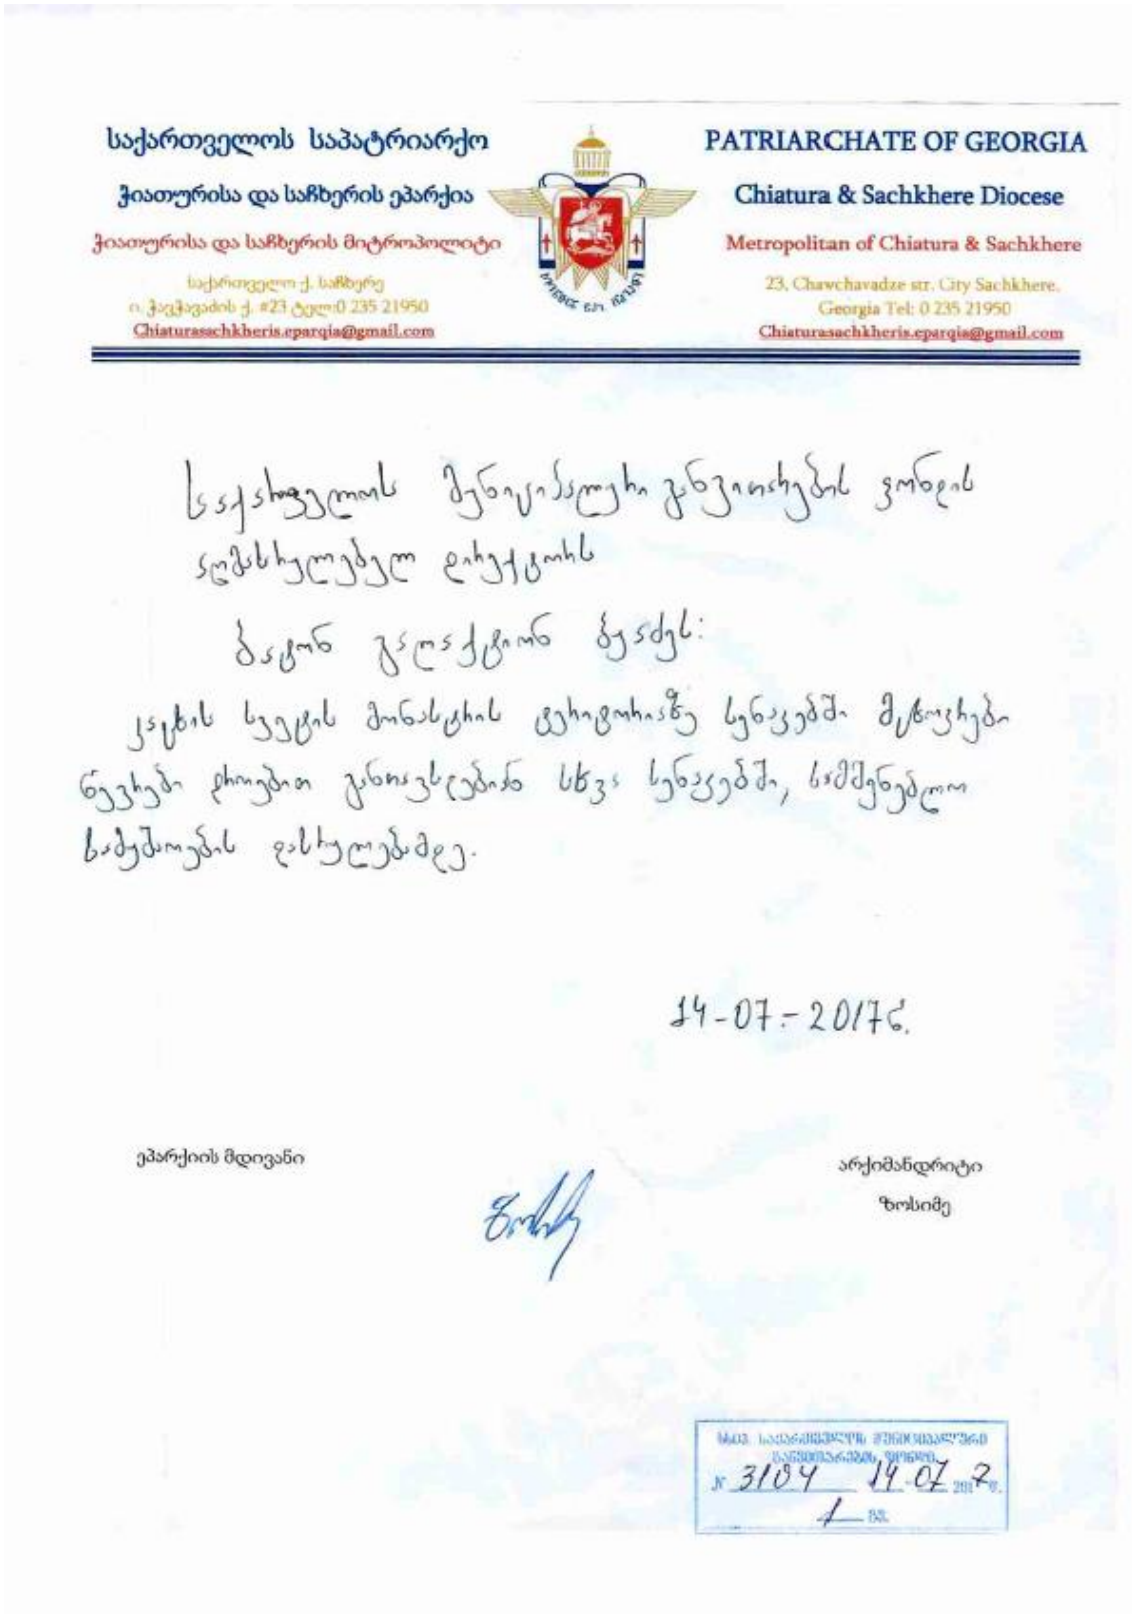 საქართველოს საპატრიარქო
ჭიათურისა და საჩხერის ეპარქია
ჭიათურისა და საჩხერის მიტროპოლიტი
საქართველო ქ. საჩხერე
ი. ჭავჭავაძის ქ. #23 ტელ:0 235 21950
Chiaturasachkheris.eparqia@gmail.com
PATRIARCHATE OF GEORGIA
Chiatura & Sachkhere Diocese
Metropolitan of Chiatura & Sachkhere
23, Chavchavadze str. City Sachkhere,
Georgia Tel: 0 235 21950
Chiaturasachkheris.eparqia@gmail.com
საქართველოს მუნიციპალური განვითარების ფონდის
აღმასრულებელ დირექტორს
ბატონ გალაქტიონ ბუაძეს:
კაცხის სვეტის მონასტრის ტერიტორიაზე სენაკებში მცხოვრები
წევრები დროებით განთავსდებიან სხვა სენაკებში, სამშენებლო
სამუშაოების დასრულებამდე.
14-07.-2017წ.
ეპარქიის მდივანი
არქიმანდრიტი
ზოსიმე
სსიპ საქართველოს მუნიციპალური
განვითარების ფონდი
N 3104 14-07 2017წ.
1 გვ.